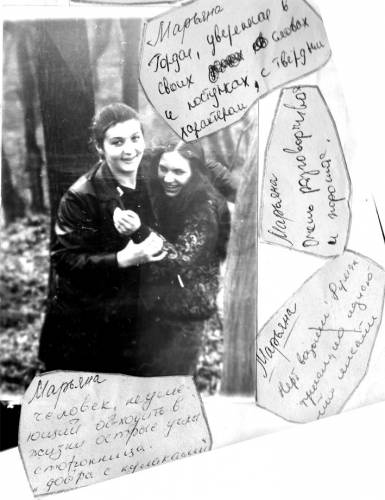 Марьяна
Гордая, уверенная в
своих словах
и поступках, с твёрдым
характером
Марьяна
Очень разговорчивая
и хорошая.
Марьяна
Нет важнее
Марьяна
человек, не умею-
ющий обходить в
жизни острые углы
сторонница
"добра с кулаками"